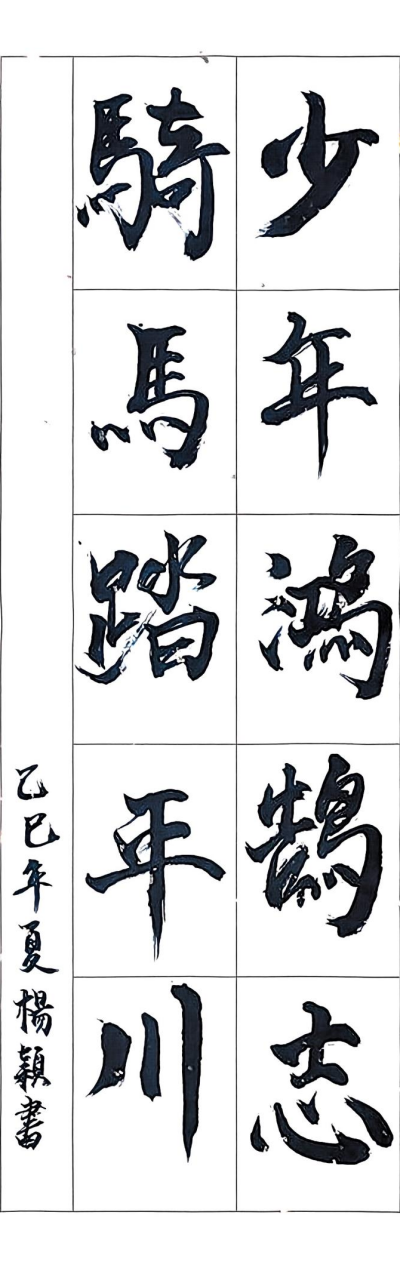 少年鴻鵠志
騎馬踏平川
乙巳年夏楊穎書